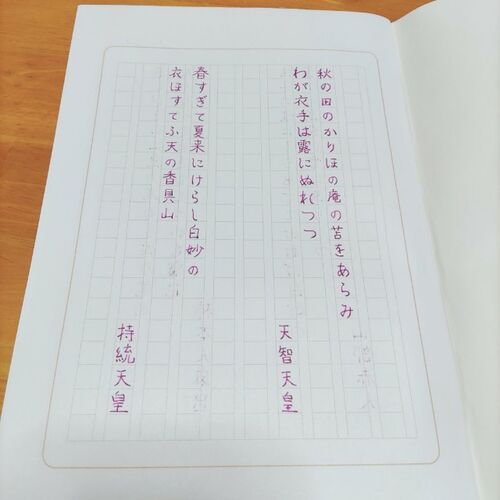 秋の田のかりほの庵の苫をあらみ
わが衣手は露にぬれつつ
天智天皇
春すぎて夏来にけらし白妙の
衣ほすてふ天の香具山
持統天皇